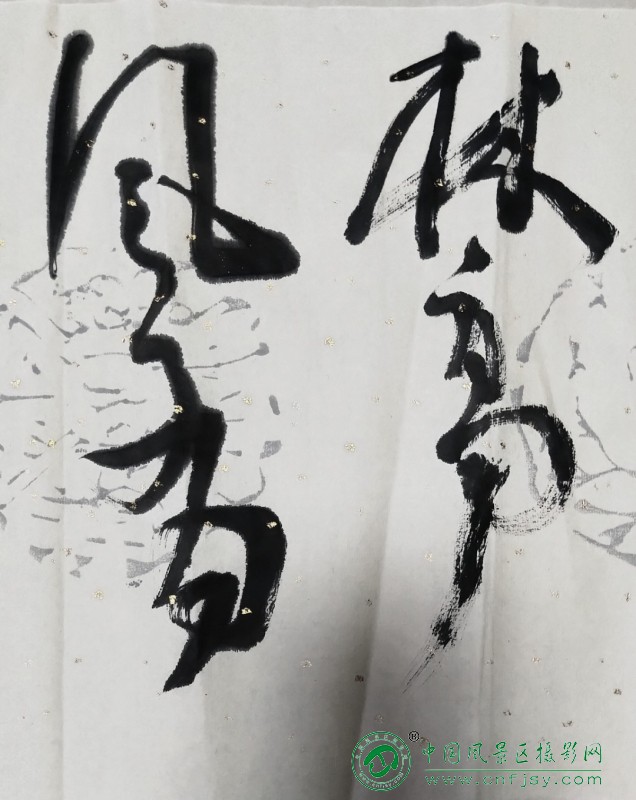 林高
风有
®
中国风景区摄影网
www.cnfjsy.com